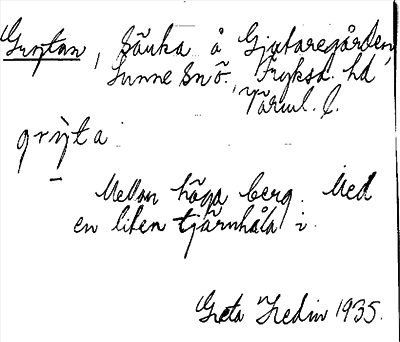 Grytan, Sänka å Gjutaregården,
Sunne Snö. Fryksd. hd
Värml. l.
grỳta
Mellan höga berg. Med
en liten tjärnhåla i.
Greta Hedin 1935.